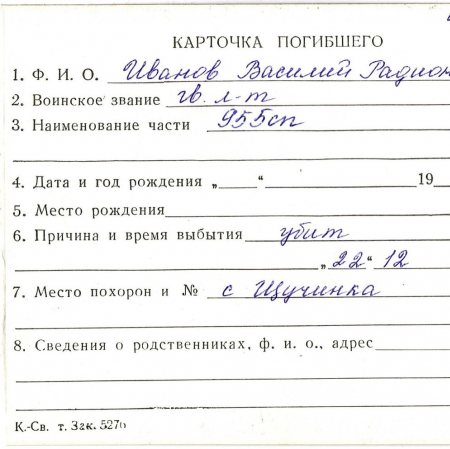 КАРТОЧКА ПОГИБШЕГО
1. Ф. И. О. Иванов Василий Радион
2. Воинское звание гв. л-т
3. Наименование части 955сп
4. Дата и год рождения „ “ 19
5. Место рождения
6. Причина и время выбытия убит
„22“ 12
7. Место похорон и № с Щучинка
8. Сведения о родственниках, ф. и. о., адрес
К.-Св. т. Зак. 5276